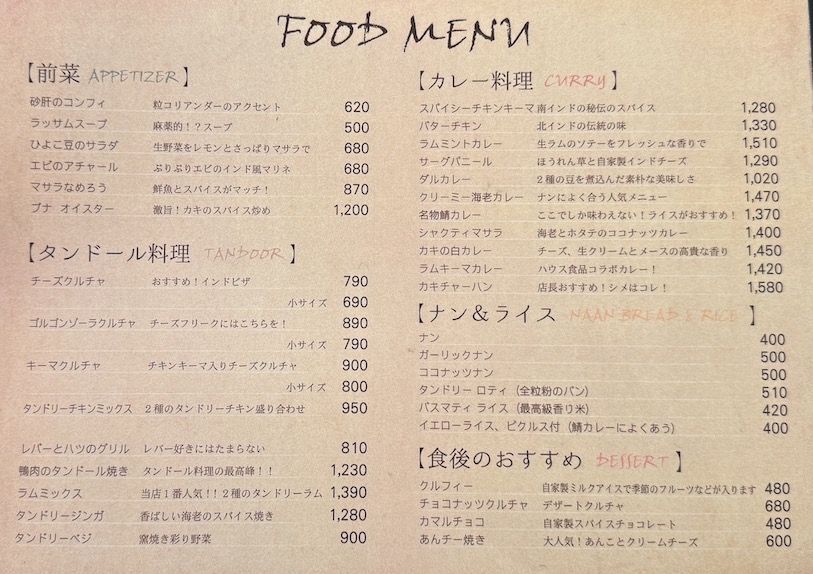 FOOD MENU
【前菜 APPETIZER】
砂肝のコンフィ 粒コリアンダーのアクセント 620
ラッサムスープ 麻薬的！？スープ 500
ひよこ豆のサラダ 生野菜をレモンとさっぱりマサラで 680
エビのアチャール ぷりぷりエビのインド風マリネ 680
マサラなめろう 鮮魚とスパイスがマッチ！ 870
ブナ オイスター 激旨！カキのスパイス炒め 1,200
【タンドール料理 TANDOOR】
チーズクルチャ おすすめ！インドピザ 790
小サイズ 690
ゴルゴンゾーラクルチャ チーズフリークにはこちらを！ 890
小サイズ 790
キーマクルチャ チキンキーマ入りチーズクルチャ 900
小サイズ 800
タンドリーチキンミックス ２種のタンドリーチキン盛り合わせ 950
レバーとハツのグリル レバー好きにはたまらない 810
鴨肉のタンドール焼き タンドール料理の最高峰！！ 1,230
ラムミックス 当店１番人気！！２種のタンドリーラム 1,390
タンドリージンガ 香ばしい海老のスパイス焼き 1,280
タンドリーベジ 窯焼き彩り野菜 900
【カレー料理 CURRY】
スパイシーチキンキーマ 南インドの秘伝のスパイス 1,280
バターチキン 北インドの伝統の味 1,330
ラムミントカレー 生ラムのソテーをフレッシュな香りで 1,510
サーグパニール ほうれん草と自家製インドチーズ 1,290
ダルカレー ２種の豆を煮込んだ素朴な美味しさ 1,020
クリーミー海老カレー ナンによく合う人気メニュー 1,470
名物鯖カレー ここでしか味わえない！ライスがおすすめ！ 1,370
シャクティマサラ 海老とホタテのココナッツカレー 1,400
カキの白カレー チーズ、生クリームとメースの高貴な香り 1,450
ラムキーマカレー ハウス食品コラボカレー！ 1,420
カキチャーハン 店長おすすめ！シメはコレ！ 1,580
【ナン＆ライス NAAN BREAD & RICE】
ナン 400
ガーリックナン 500
ココナッツナン 500
タンドリー ロティ（全粒粉のパン） 510
バスマティ ライス（最高級香り米） 420
イエローライス、ピクルス付（鯖カレーによくあう) 400
【食後のおすすめ DESSERT】
クルフィー 自家製ミルクアイスで季節のフルーツなどが入ります 480
チョコナッツクルチャ デザートクルチャ 680
カマルチョコ 自家製スパイスチョコレート 480
あんチー焼き 大人気！あんことクリームチーズ 600